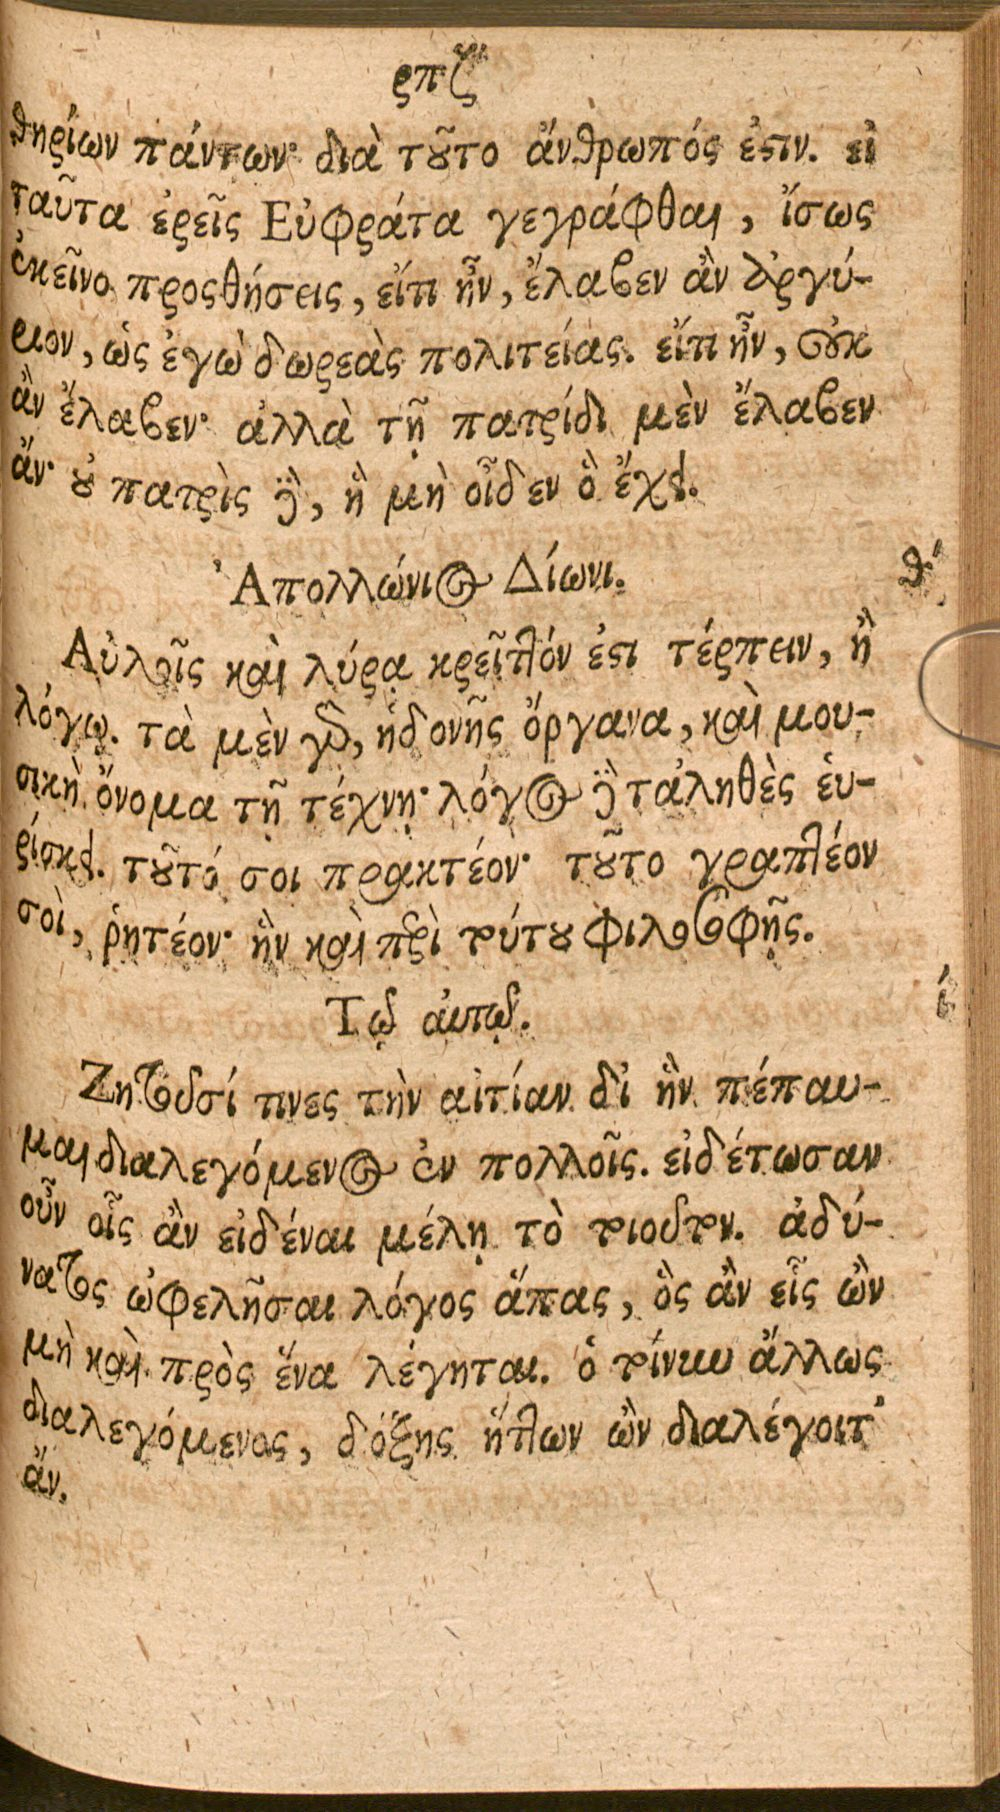 ρπζʹ
θηρίων πάντων· διὰ τοῦτο ἄνθρωπός ἐστιν. εἰ
ταῦτα ἐρεῖς Εὐφράτα γεγράφθαι, ἴσως
ἐκεῖνο προσθήσεις, εἴτι ἦν, ἔλαβεν ἂν ἀργύ-
ριον, ὡς ἐγὼ δωρεὰς πολιτείας. εἴτι ἦν, οὐκ
ἂν ἔλαβεν· ἀλλὰ τῇ πατρίδι μὲν ἔλαβεν
ἄν· οὐ πατρὶς δὲ, ἣ μὴ οἶδεν ὃ ἔχει.
Ἀπολλώνιος Δίωνι.
θʹ
Αὐλοῖς καὶ λύρᾳ κρεῖττόν ἐστι τέρπειν, ἢ
λόγῳ. τὰ μὲν γὰρ, ἡδονῆς ὄργανα, καὶ μου-
σικὴ ὄνομα τῇ τέχνῃ· λόγος δὲ τἀληθὲς εὑ-
ρίσκει. τοῦτό σοι πρακτέον· τοῦτο γραπτέον
σοὶ, ῥητέον· ἢν καὶ περὶ τούτου φιλοσοφῇς.
Τῷ αὐτῷ.
ίʹ
Ζητοῦσί τινες τὴν αἰτίαν δι' ἣν πέπαυ-
μαι διαλεγόμενος ἐν πολλοῖς. εἰδέτωσαν
οὖν οἷς ἂν εἰδέναι μέλῃ τὸ τοιοῦτον. ἀδύ-
νατος ὠφελῆσαι λόγος ἅπας, ὃς ἂν εἷς ὢν
μὴ καὶ πρὸς ἕνα λέγηται. ὁ τοίνυν ἄλλως
διαλεγόμενος, δόξης ἥττων ὢν διαλέγοιτ'
ἄν.